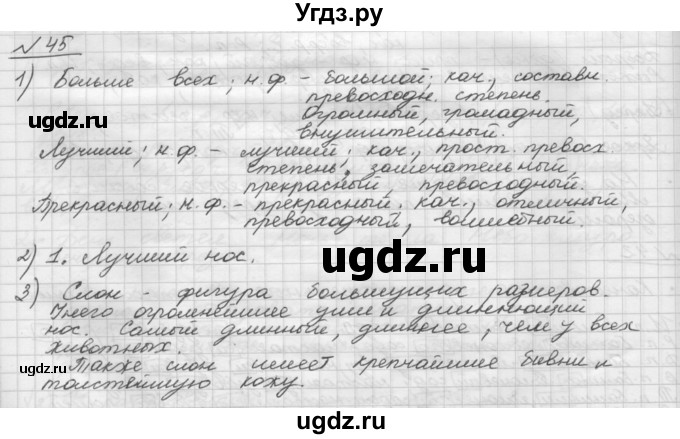 Угдз.ру
№ 45
1) Больше всех; н.ф. - большой; кач., составн.
превосходн. степень.
Огромный, громадный,
внушительный.
Лучший; н.ф. - лучшей; кач., прост. превосх.
степень, замечательный,
прекрасный, превосходный.
Прекрасный; н.ф. - прекрасный. кач., отличный,
превосходный, волшебный.
2) 1. Лучший нос.
3) Слон - фигура большущих размеров.
У него огромнейшие уши и длиннющий
нос. Самый длинный, длиннее, чем у всех
животных.
Также слон имеет крепчайшие бивни и
толстейшую кожу.
ugdz.ru
ugdz.ru
ugdz.ru
ugdz.ru
ugdz.ru
ugdz.ru